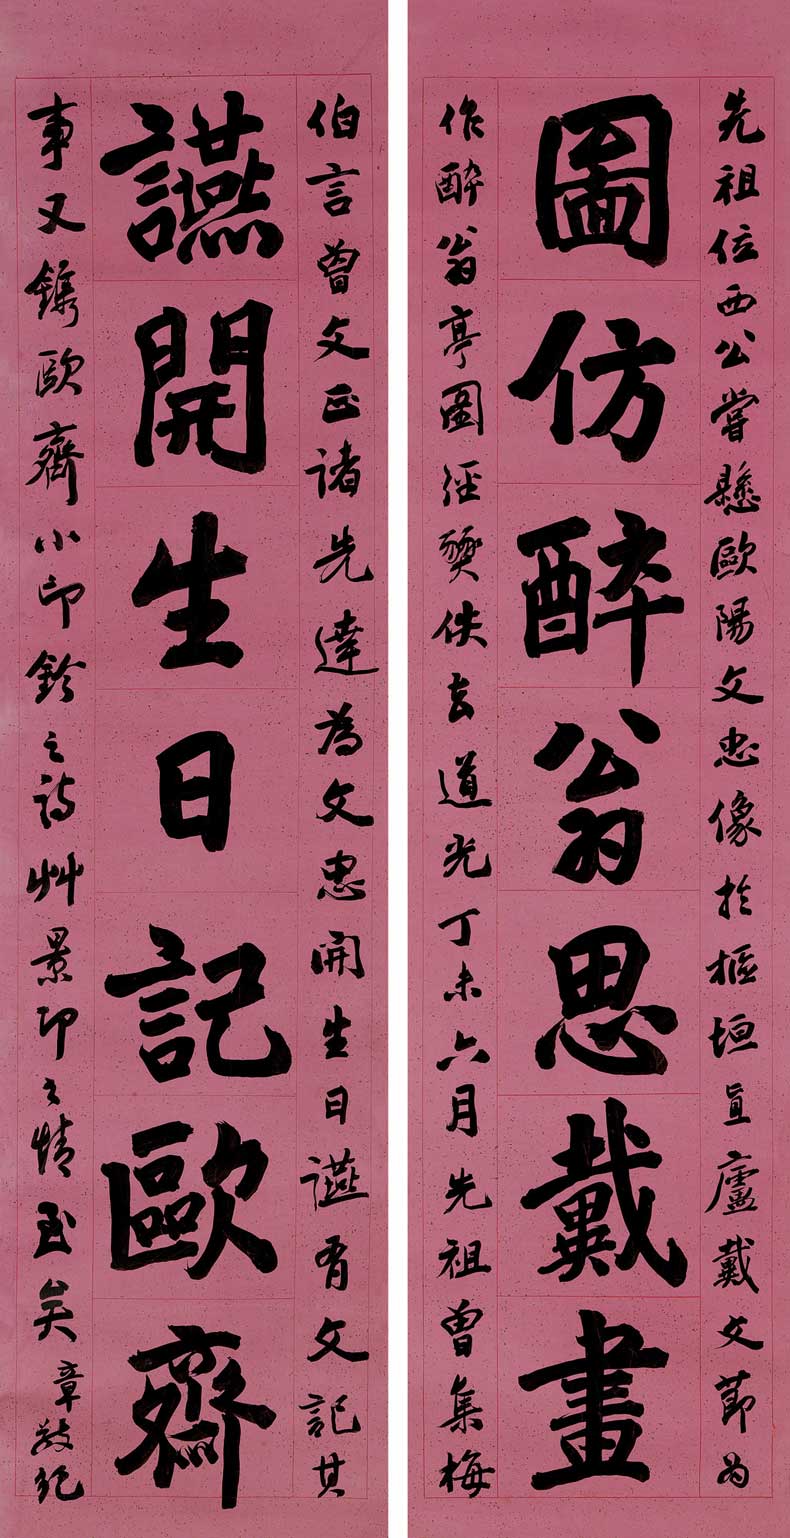 先祖位西公嘗懸歐陽文忠像於樞垣直廬戴文節為
圖仿醉翁思戴畫
作醉翁亭圖經燹佚去道光丁未六月先祖曾集梅
伯言曾文正諸先達為文忠開生日讌有文記其
讌開生日記歐齋
事又鐫歐齋小印鈐之詩艸景印之情至矣章敬紀